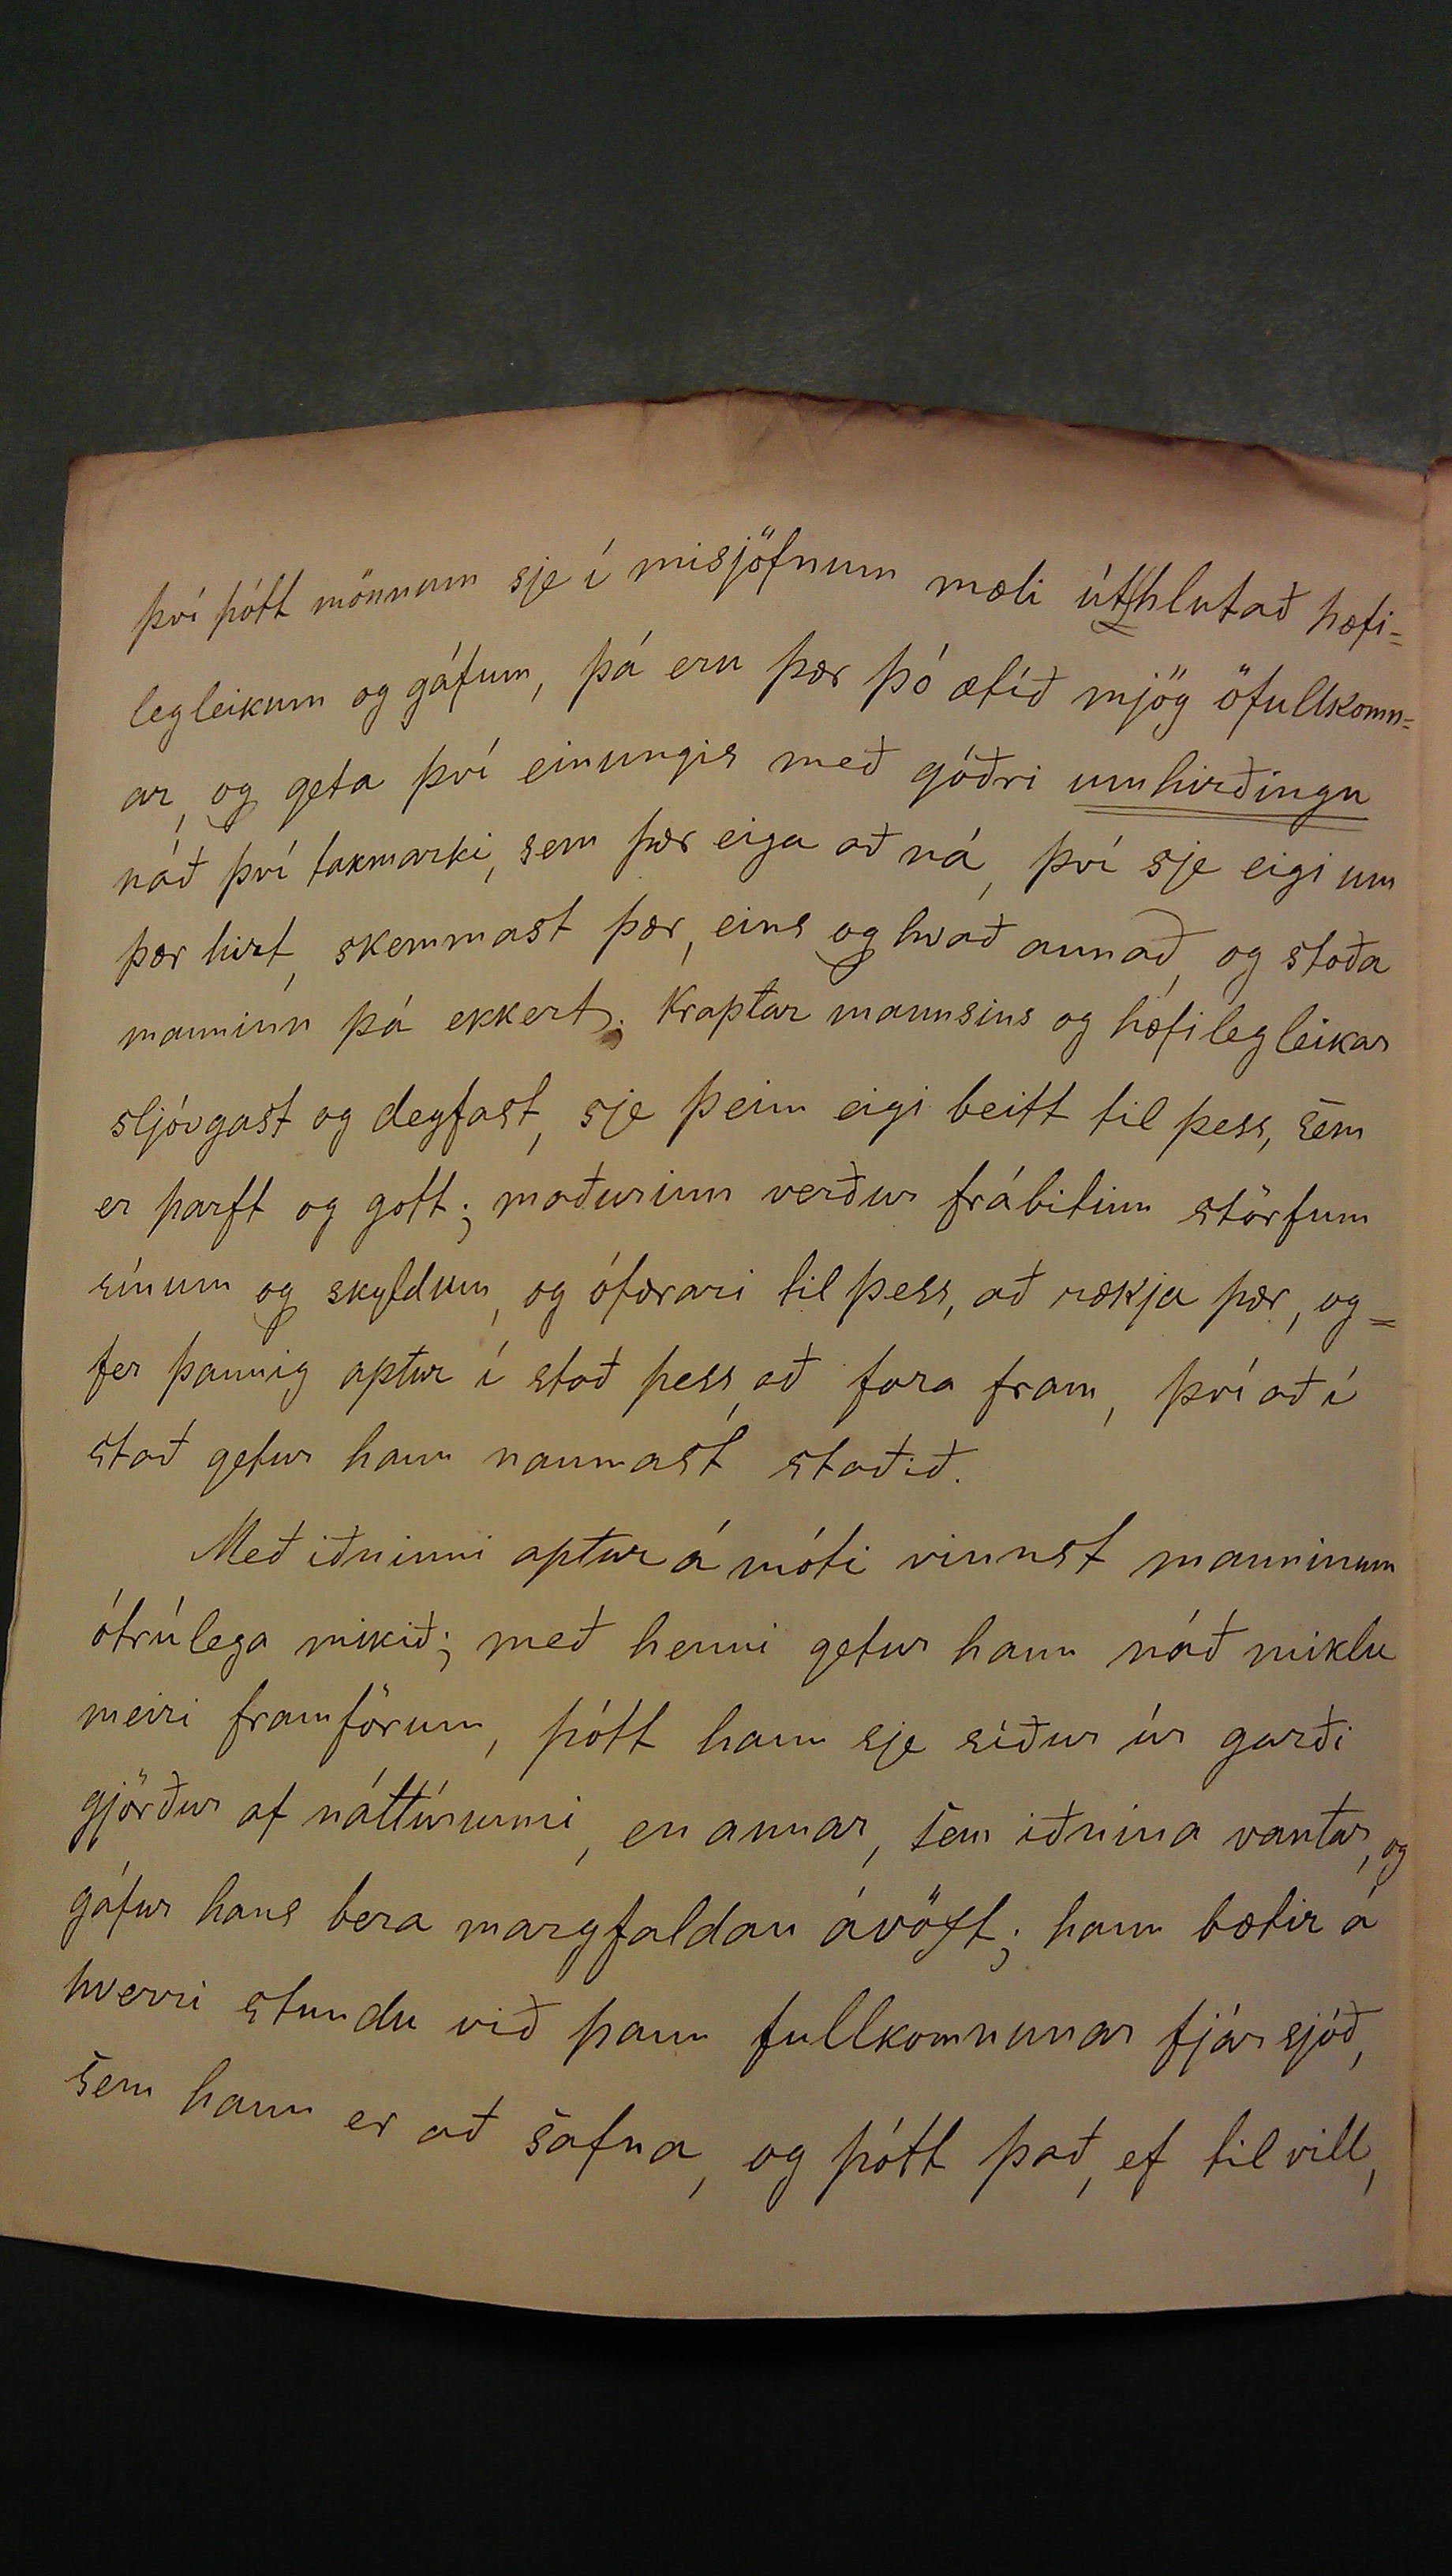 því þótt mönnum sje í misjöfnum mæli úthlutað hæfi=
legleikum og gáfum, þá eru þær þó ætíð mjög öfullkomn=
ar, og geta því einungis með góðri umhirðingu
náð því takmarki, sem þær eiga að ná, því sje eigi um
þær hirt, skemmast þær, eins og hvað annað, og stoða
manninn þá ekkert. Kraptar mannsins og hæfilegleikar
sljóvgast og deyfast, sje þeim eigi beitt til þess, sem
er þarft og gott; maðurinn verður frábitinn störfum
sínum og skyldum, og ófærari til þess, að rækja þær, og=
fer þannig aptur í stað þess, að fara fram, því að í
stað getur hann naumast staðið.
Með iðninni aptur á móti vinnst manninum
ótrúlega mikið; með henni getur hann náð miklu
meiri framförum, þótt hann sje síður úr garði
gjörður af náttúrunni, en annar, sem iðnina vantar, og
gáfur hans bera margfaldan ávöxt; hann bætir á
hverri stundu við þann fullkomnunar fjársjóð,
sem hann er að safna, og þótt það, ef til vill,